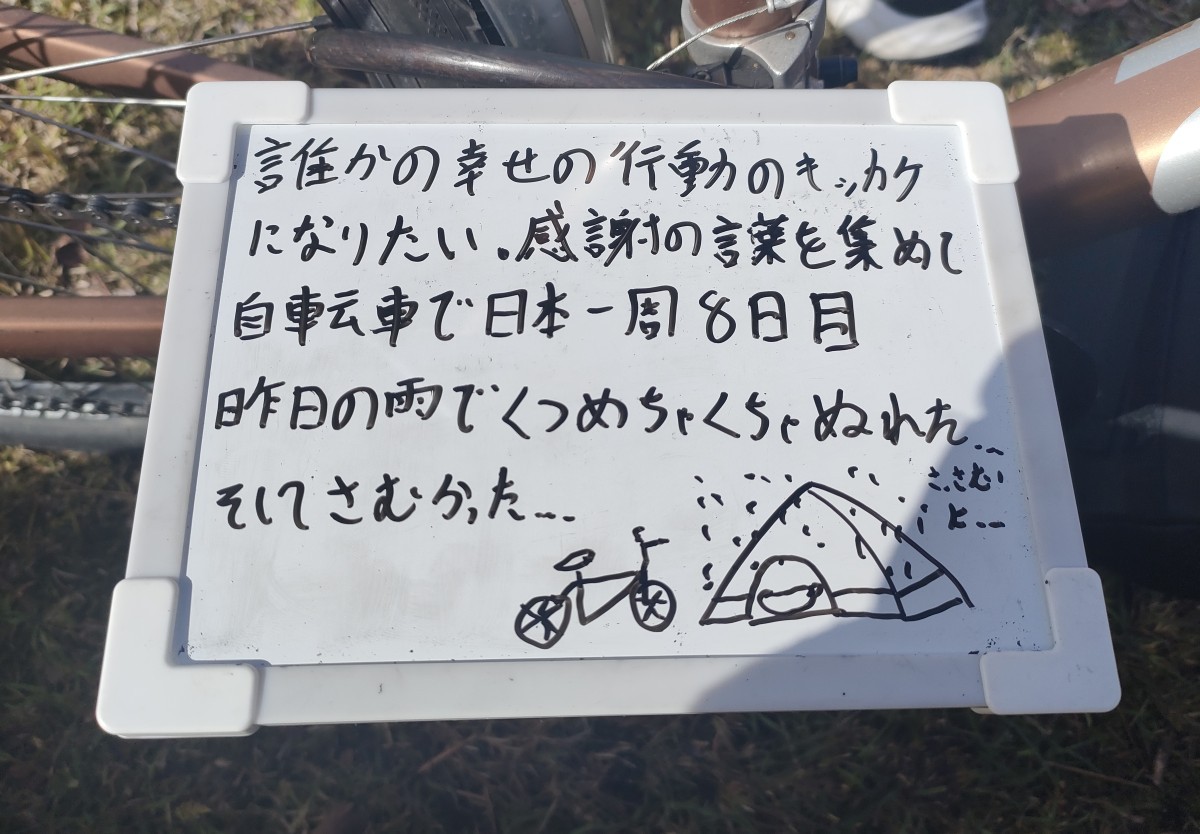 誰かの幸せの行動のキッカケ
になりたい。感謝の言葉を集めし
自転車で日本一周8日目
昨日の雨でくつめちゃくちゃぬれた...
そしてさむかった...
さ、さむい
よ...